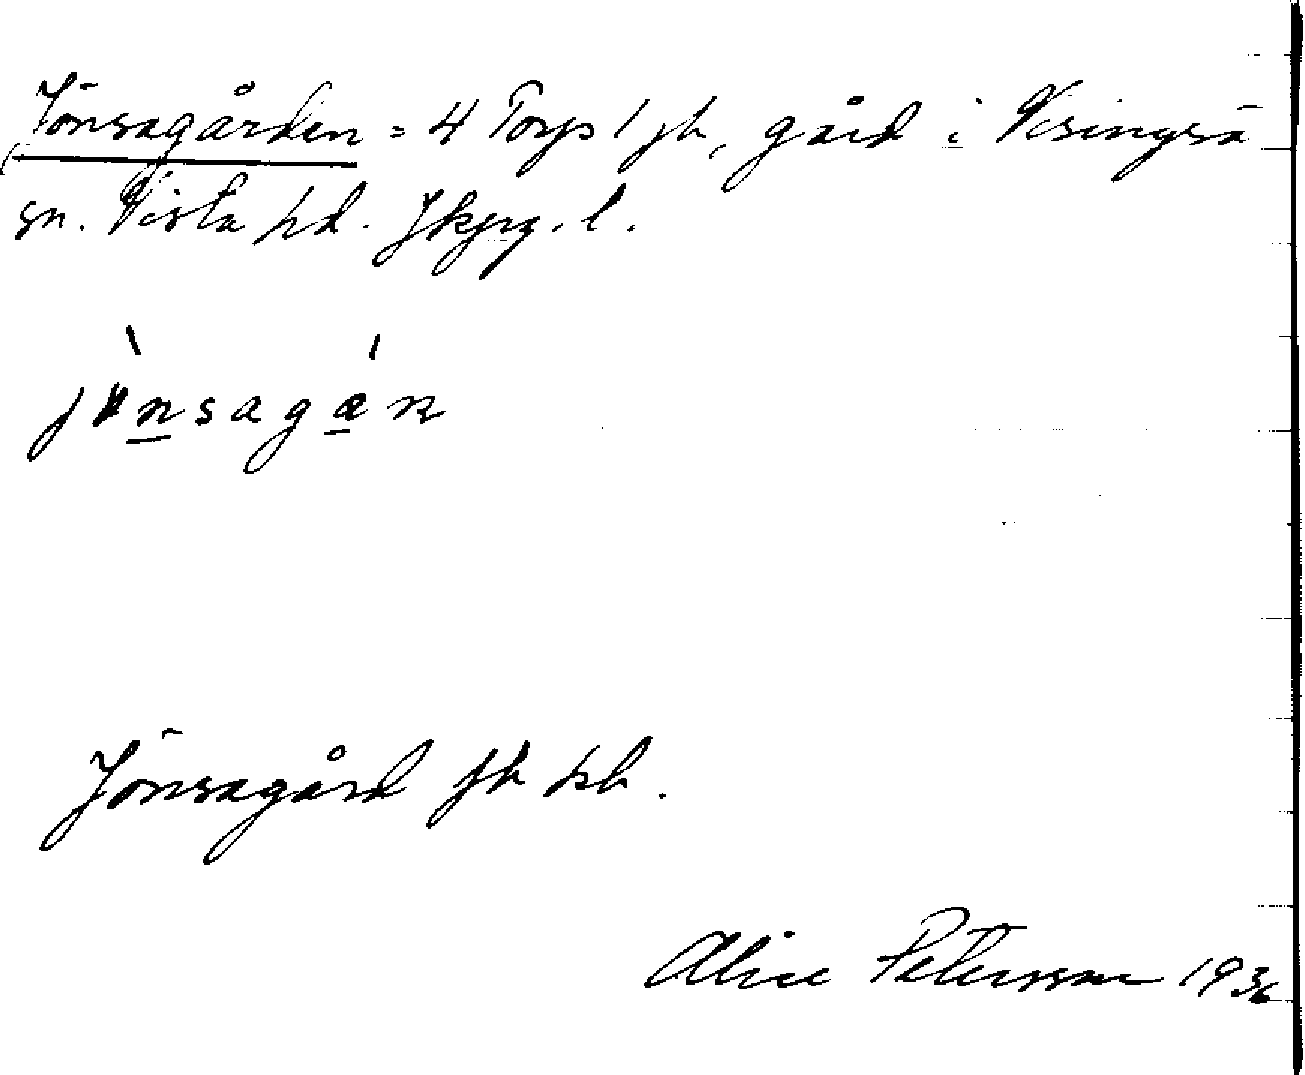 Jönsagården = 4 Torp 1 jb, gård i Visingsö
sn. Vista hd. Jkpg. l.
jönsagán
Jönsagård jb kb.
Alice Petersson 1936